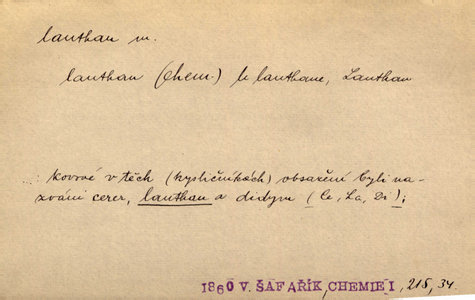 lanthan m.
lanthan (chem.) le lanthane, Lanthan
..: kovové v těch (kysličníkách) obsažení byli na-
zváni cerer, lanthan a didym (Ce, La, Di);
1860 V. ŠAFAŘÍK, CHEMIE I, 215, 34.